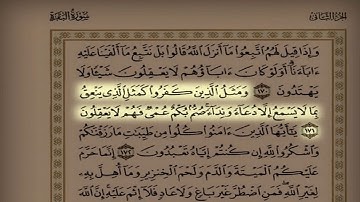 الجزء الثاني
سورة البقرة
وَإِذَا قِيلَ لَهُمُ ٱتَّبِعُوا۟ مَآ أَنزَلَ ٱللَّهُ قَالُوا۟ بَلْ نَتَّبِعُ مَآ أَلْفَيْنَا عَلَيْهِ
ءَابَآءَنَآ أَوَلَوْ كَانَ ءَابَآؤُهُمْ لَا يَعْقِلُونَ شَيْـًٔا وَلَا
يَهْتَدُونَ ١٧٠ وَمَثَلُ ٱلَّذِينَ كَفَرُوا۟ كَمَثَلِ ٱلَّذِى يَنْعِقُ
بِمَا لَا يَسْمَعُ إِلَّا دُعَآءً وَنِدَآءً صُمٌّۢ بُكْمٌ عُمْىٌ فَهُمْ لَا يَعْقِلُونَ
١٧١ يَـٰٓأَيُّهَا ٱلَّذِينَ ءَامَنُوا۟ كُلُوا۟ مِن طَيِّبَـٰتِ مَا رَزَقْنَـٰكُمْ
وَٱشْكُرُوا۟ لِلَّهِ إِن كُنتُمْ إِيَّاهُ تَعْبُدُونَ ١٧٢ إِنَّمَا حَرَّمَ
عَلَيْكُمُ ٱلْمَيْتَةَ وَٱلدَّمَ وَلَحْمَ ٱلْخِنزِيرِ وَمَآ أُهِلَّ بِهِۦ
لِغَيْرِ ٱللَّهِ فَمَنِ ٱضْطُرَّ غَيْرَ بَاغٍ وَلَا عَادٍ فَلَآ إِثْمَ عَلَيْهِ إِنَّ ٱللَّهَ